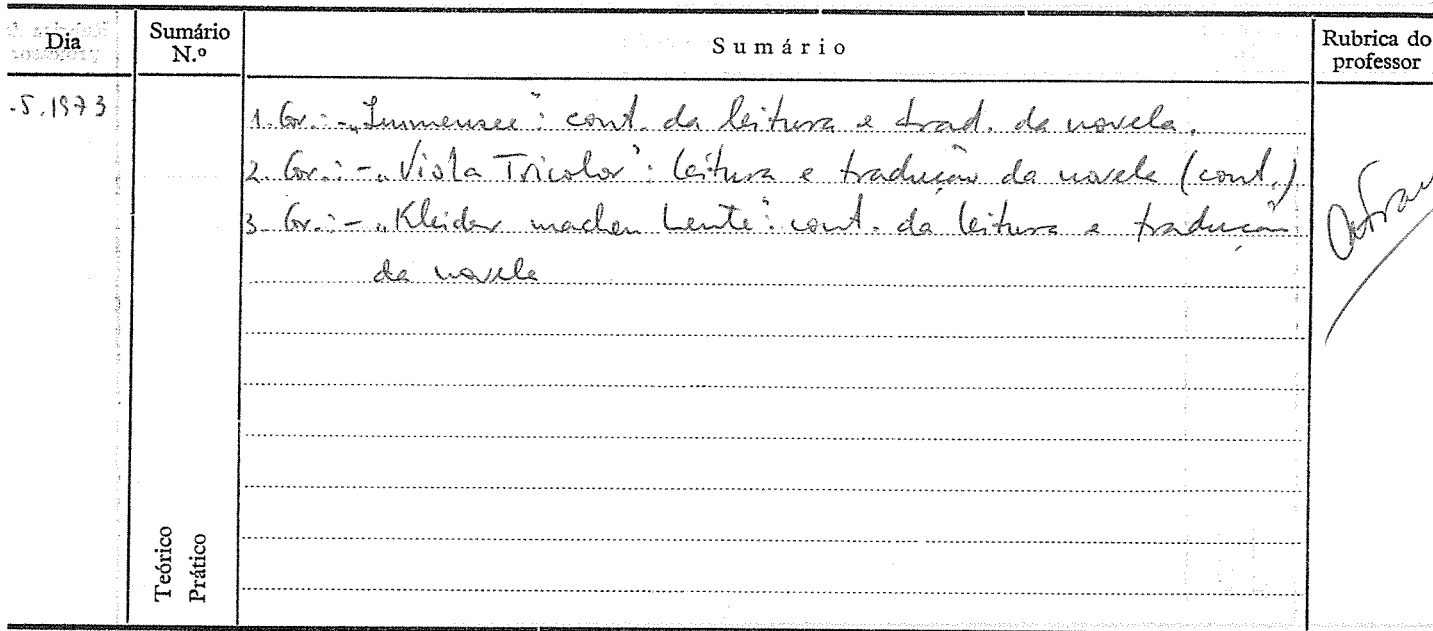 Dia
Sumário
N.º
Sumário
Rubrica do
professor
.5.1973
1. Gr.: - „Immensee“: cont. da leitura e trad. da novela.
2. Gr.: - „Viola Tricolor“: leitura e tradução da novela (cont.)
3. Gr.: - „Kleider machen Leute“: cont. da leitura e tradução
da novela
Teórico
Prático